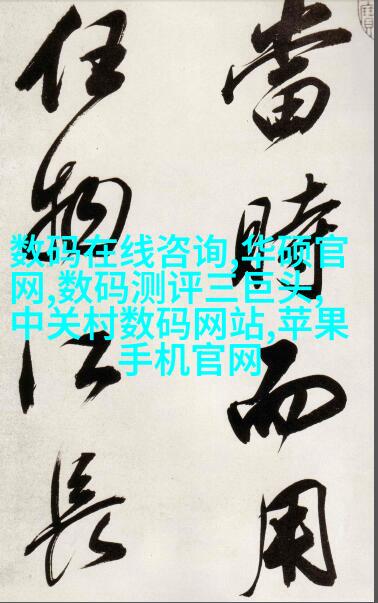 當時而用
任物以長
数码在线咨询,华硕官
网,数码测评三巨头,
中关村数码网站,苹果
手机官网